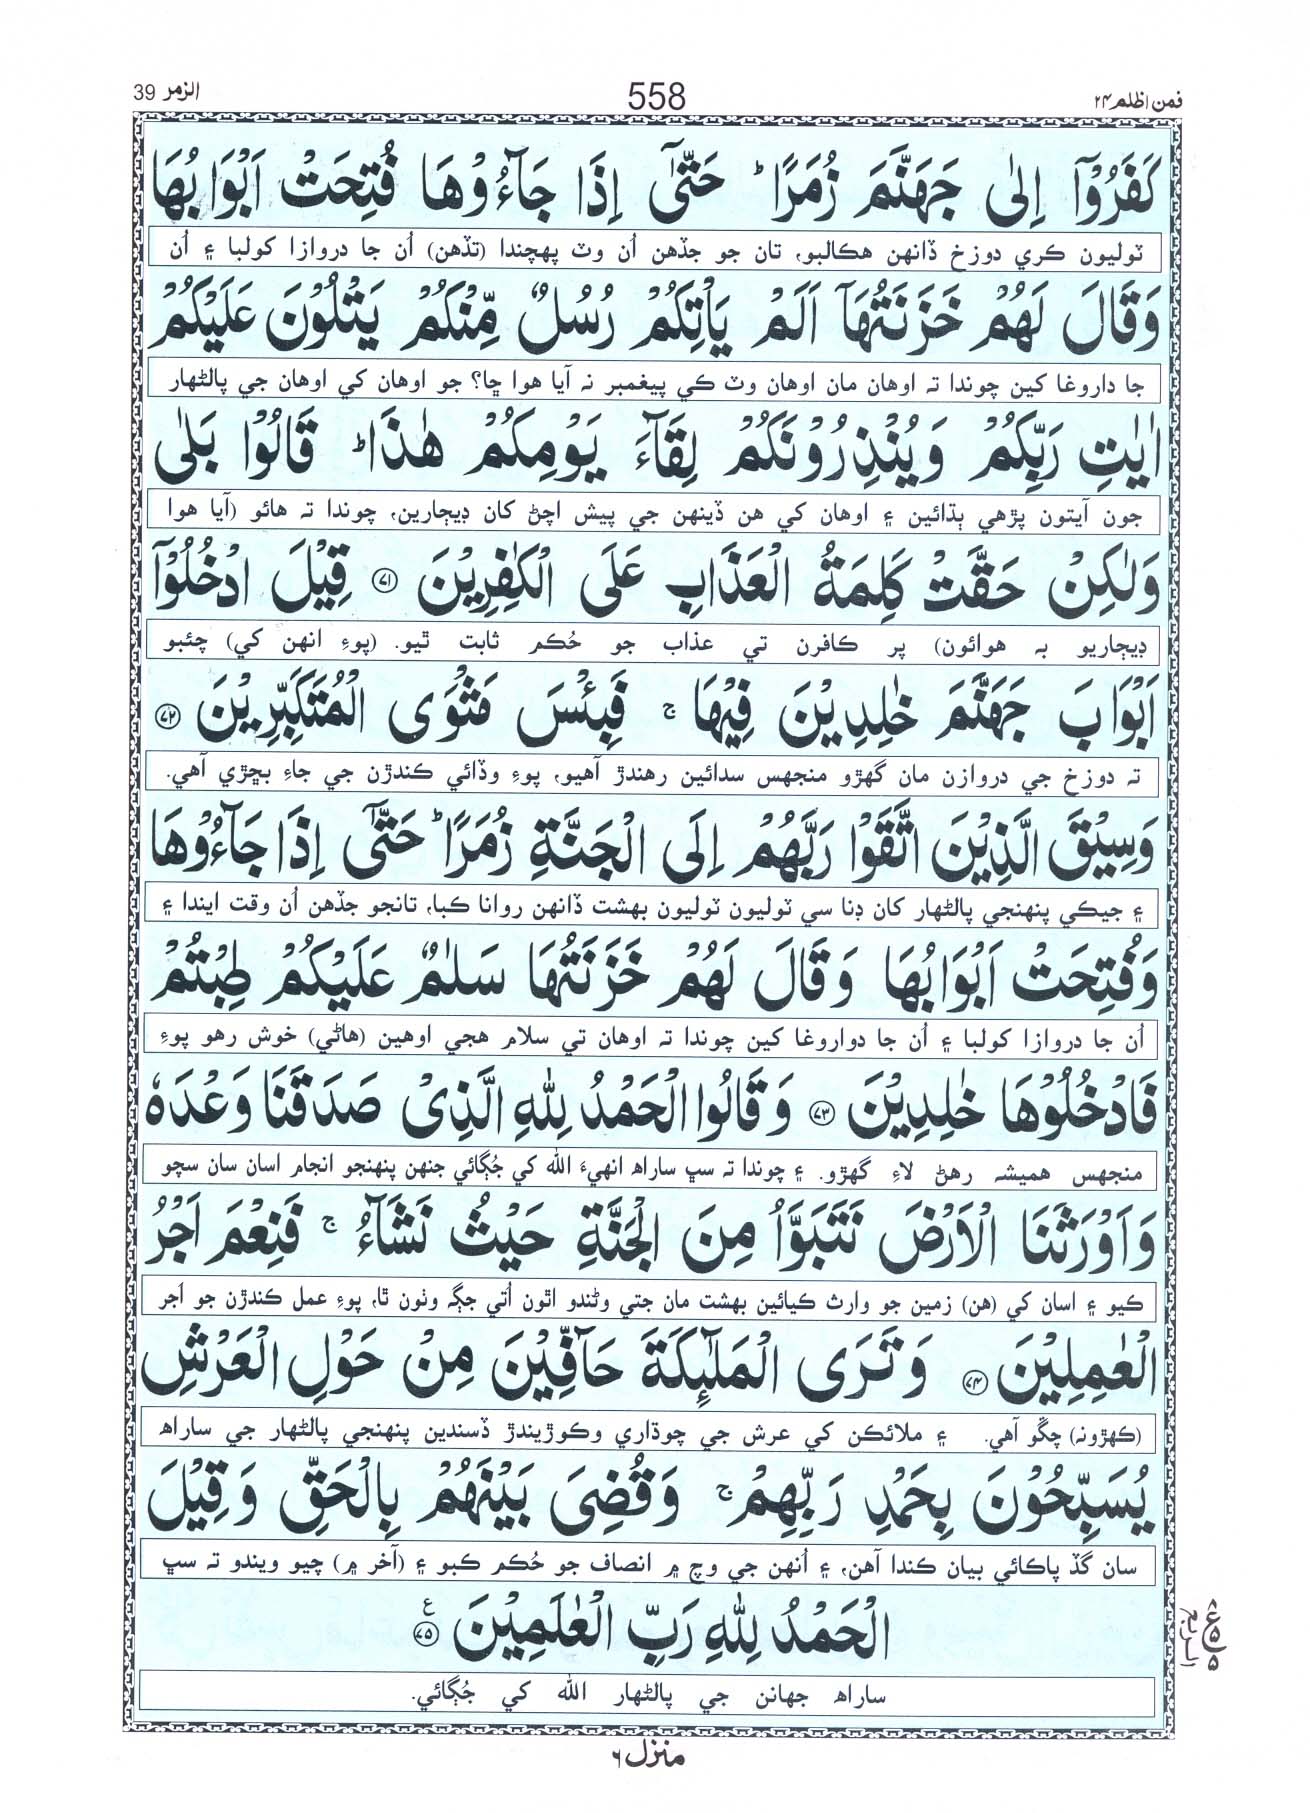 فمن اظلم ۲۴ 558 الزمر 39
كَفَرُوْۤا اِلٰى جَهَنَّمَ زُمَرًا ؕ حَتّٰۤى اِذَا جَآءُوْهَا فُتِحَتْ اَبْوَابُهَا
ٽوليون ڪري دوزخ ڏانهن هڪالبو، تان جو جڏهن اُن وٽ پهچندا (تڏهن) اُن جا دروازا کولبا ۽ اُن
وَقَالَ لَهُمْ خَزَنَتُهَاۤ اَلَمْ يَاْتِكُمْ رُسُلٌ مِّنْكُمْ يَتْلُوْنَ عَلَيْكُمْ
جا داروغا کين چوندا ته اوهان مان اوهان وٽ ڪي پيغمبر نه آيا هوا ڇا؟ جو اوهان کي اوهان جي پالڻهار
اٰيٰتِ رَبِّكُمْ وَيُنْذِرُوْنَكُمْ لِقَآءَ يَوْمِكُمْ هٰذَا ؕ قَالُوْا بَلٰى
جون آيتون پڙهي ٻڌائين ۽ اوهان کي هن ڏينهن جي پيش اچڻ کان ڊيڄارين، چوندا ته هائو (آيا هوا
وَلٰكِنْ حَقَّتْ كَلِمَةُ الْعَذَابِ عَلَى الْكٰفِرِيْنَ ﴿۷۱﴾ قِيْلَ ادْخُلُوْۤا
ڊيڄاريو به هوائون) پر ڪافرن تي عذاب جو حُڪم ثابت ٿيو. (پوءِ انهن کي) چئبو
اَبْوَابَ جَهَنَّمَ خٰلِدِيْنَ فِيْهَا ۚ فَبِئْسَ مَثْوَى الْمُتَكَبِّرِيْنَ ﴿۷۲﴾
ته دوزخ جي دروازن مان گهڙو منجهس سدائين رهندڙ آهيو، پوءِ وڏائي ڪندڙن جي جاءِ بڇڙي آهي.
وَسِيْقَ الَّذِيْنَ اتَّقَوْا رَبَّهُمْ اِلَى الْجَنَّةِ زُمَرًا ؕ حَتّٰۤى اِذَا جَآءُوْهَا
۽ جيڪي پنهنجي پالڻهار کان ڊنا سي ٽوليون ٽوليون بهشت ڏانهن روانا ڪبا، تانجو جڏهن اُن وقت ايندا ۽
وَفُتِحَتْ اَبْوَابُهَا وَقَالَ لَهُمْ خَزَنَتُهَا سَلٰمٌ عَلَيْكُمْ طِبْتُمْ
اُن جا دروازا کولبا ۽ اُن جا دواروغا کين چوندا ته اوهان تي سلام هجي اوهين (هاڻي) خوش رهو پوءِ
فَادْخُلُوْهَا خٰلِدِيْنَ ﴿۷۳﴾ وَقَالُوا الْحَمْدُ لِلّٰهِ الَّذِىْ صَدَقَنَا وَعْدَهٗ
منجهس هميشه رهڻ لاءِ گهڙو. ۽ چوندا ته سڀ ساراهه انهيءَ الله کي جُڳائي جنهن پنهنجو انجام اسان سان سچو
وَاَوْرَثَنَا الْاَرْضَ نَتَبَوَّاُ مِنَ الْجَنَّةِ حَيْثُ نَشَآءُ ۚ فَنِعْمَ اَجْرُ
ڪيو ۽ اسان کي (هن) زمين جو وارث ڪيائين بهشت مان جتي وڻندو اٿون اُتي جڳهه وٺون ٿا، پوءِ عمل ڪندڙن جو اَجر
الْعٰمِلِيْنَ ﴿۷۴﴾ وَتَرَى الْمَلٰٓئِكَةَ حَآفِّيْنَ مِنْ حَوْلِ الْعَرْشِ
(ڪهڙونه) چڱو آهي. ۽ ملائڪن کي عرش جي چوڌاري وڪوڙيندڙ ڏسندين پنهنجي پالڻهار جي ساراهه
يُسَبِّحُوْنَ بِحَمْدِ رَبِّهِمْ ۚ وَقُضِىَ بَيْنَهُمْ بِالْحَقِّ وَقِيْلَ
سان گڏ پاڪائي بيان ڪندا آهن، ۽ اُنهن جي وچ ۾ انصاف جو حُڪم ڪبو ۽ (آخر ۾) چيو ويندو ته سڀ
الْحَمْدُ لِلّٰهِ رَبِّ الْعٰلَمِيْنَ ﴿۷۵﴾ ع
ساراهه جهانن جي پالڻهار الله کي جُڳائي.
منزل ٦